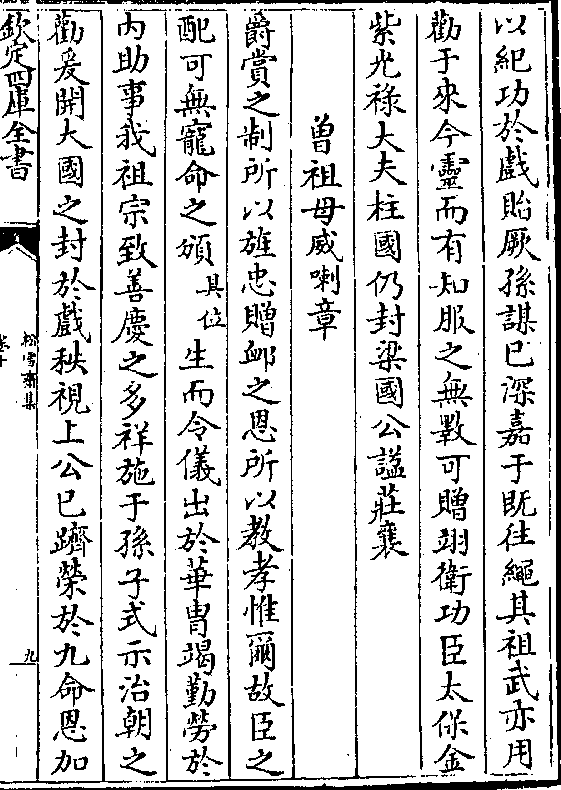 以紀功於戲貽厥孫謀已深嘉于既往繩其祖武亦用
勸于來今靈而有知服之無斁可贈翊衛功臣太保金
紫光祿大夫柱國仍封梁國公諡莊襄
曾祖母威喇章
爵賞之制所以旌忠贈䘏之恩所以教孝惟爾故臣之
配可無寵命之頒具位生而令儀出於華胄竭勤勞於
內助事我祖宗致善慶之多祥施于孫子式示治朝之
勸爰開大國之封於戲秩視上公已躋榮於九命恩加
欽定四庫全書
松雪齋集
卷十
九